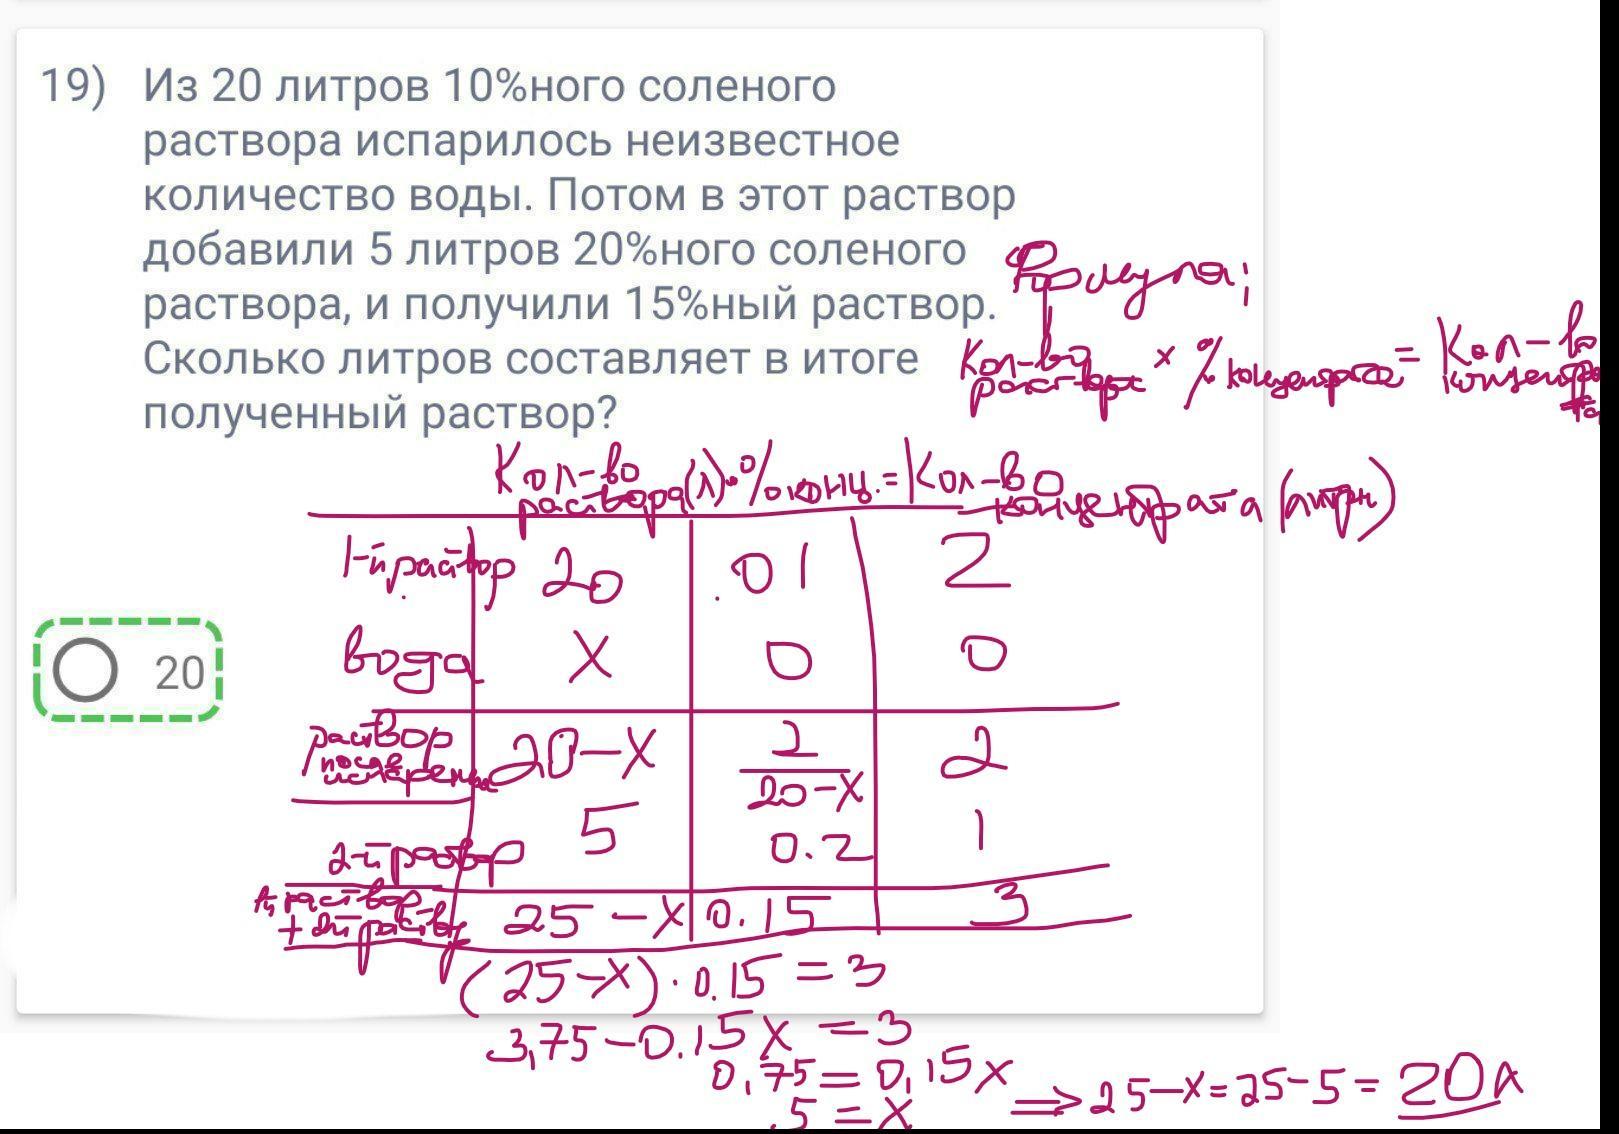 19) Из 20 литров 10%ного соленого
раствора испарилось неизвестное
количество воды. Потом в этот раствор
добавили 5 литров 20%ного соленого
раствора, и получили 15%ный раствор.
Сколько литров составляет в итоге
полученный раствор?
Формула:
Кол-во раствора × % концентрата = Кол-во
Кол-во раствора (л) · % конц. = Кол-во концентрата (литры)
1-й раствор 20 01 2
вода x 0 0
раствор после испарения 20-x 2/(20-x) 2
2-й раствор 5 0.2 1
25-x 0.15 3
20
(25-x)·0.15=3
3,75-0.15x=3
0,75=0,15x
5=x ⇒ 25-x=25-5=20л